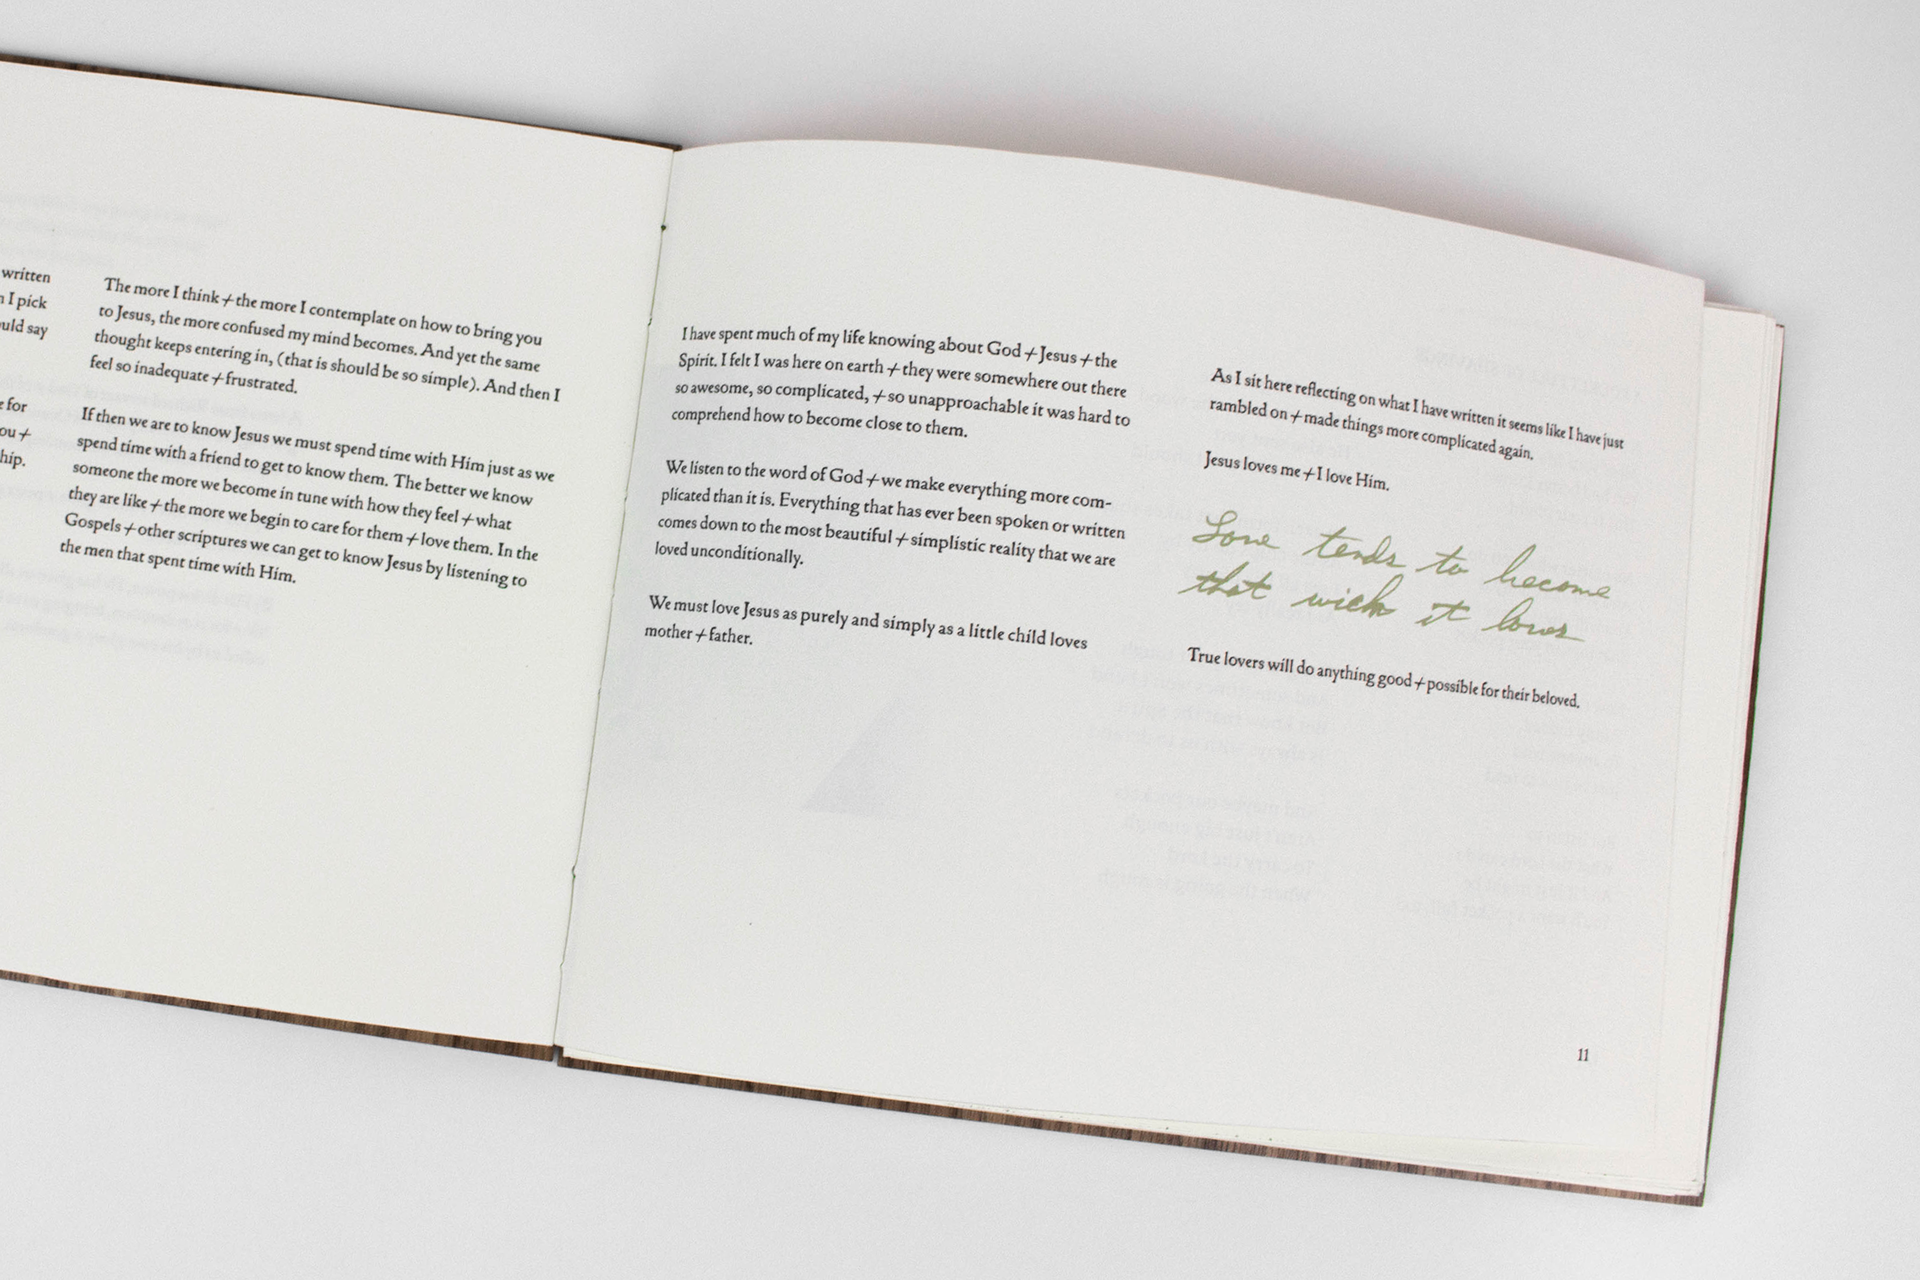 written
I pick
uld say
for
ou +
hip.
The more I think + the more I contemplate on how to bring you
to Jesus, the more confused my mind becomes. And yet the same
thought keeps entering in, (that is should be so simple). And then I
feel so inadequate + frustrated.
If then we are to know Jesus we must spend time with Him just as we
spend time with a friend to get to know them. The better we know
someone the more we become in tune with how they feel + what
they are like + the more we begin to care for them + love them. In the
Gospels + other scriptures we can get to know Jesus by listening to
the men that spent time with Him.
I have spent much of my life knowing about God + Jesus + the
Spirit. I felt I was here on earth + they were somewhere out there
so awesome, so complicated, + so unapproachable it was hard to
comprehend how to become close to them.
We listen to the word of God + we make everything more com-
plicated than it is. Everything that has ever been spoken or written
comes down to the most beautiful + simplistic reality that we are
loved unconditionally.
We must love Jesus as purely and simply as a little child loves
mother + father.
As I sit here reflecting on what I have written it seems like I have just
rambled on + made things more complicated again.
Jesus loves me + I love Him.
Love tends to become
that wich it loves
True lovers will do anything good + possible for their beloved.
11